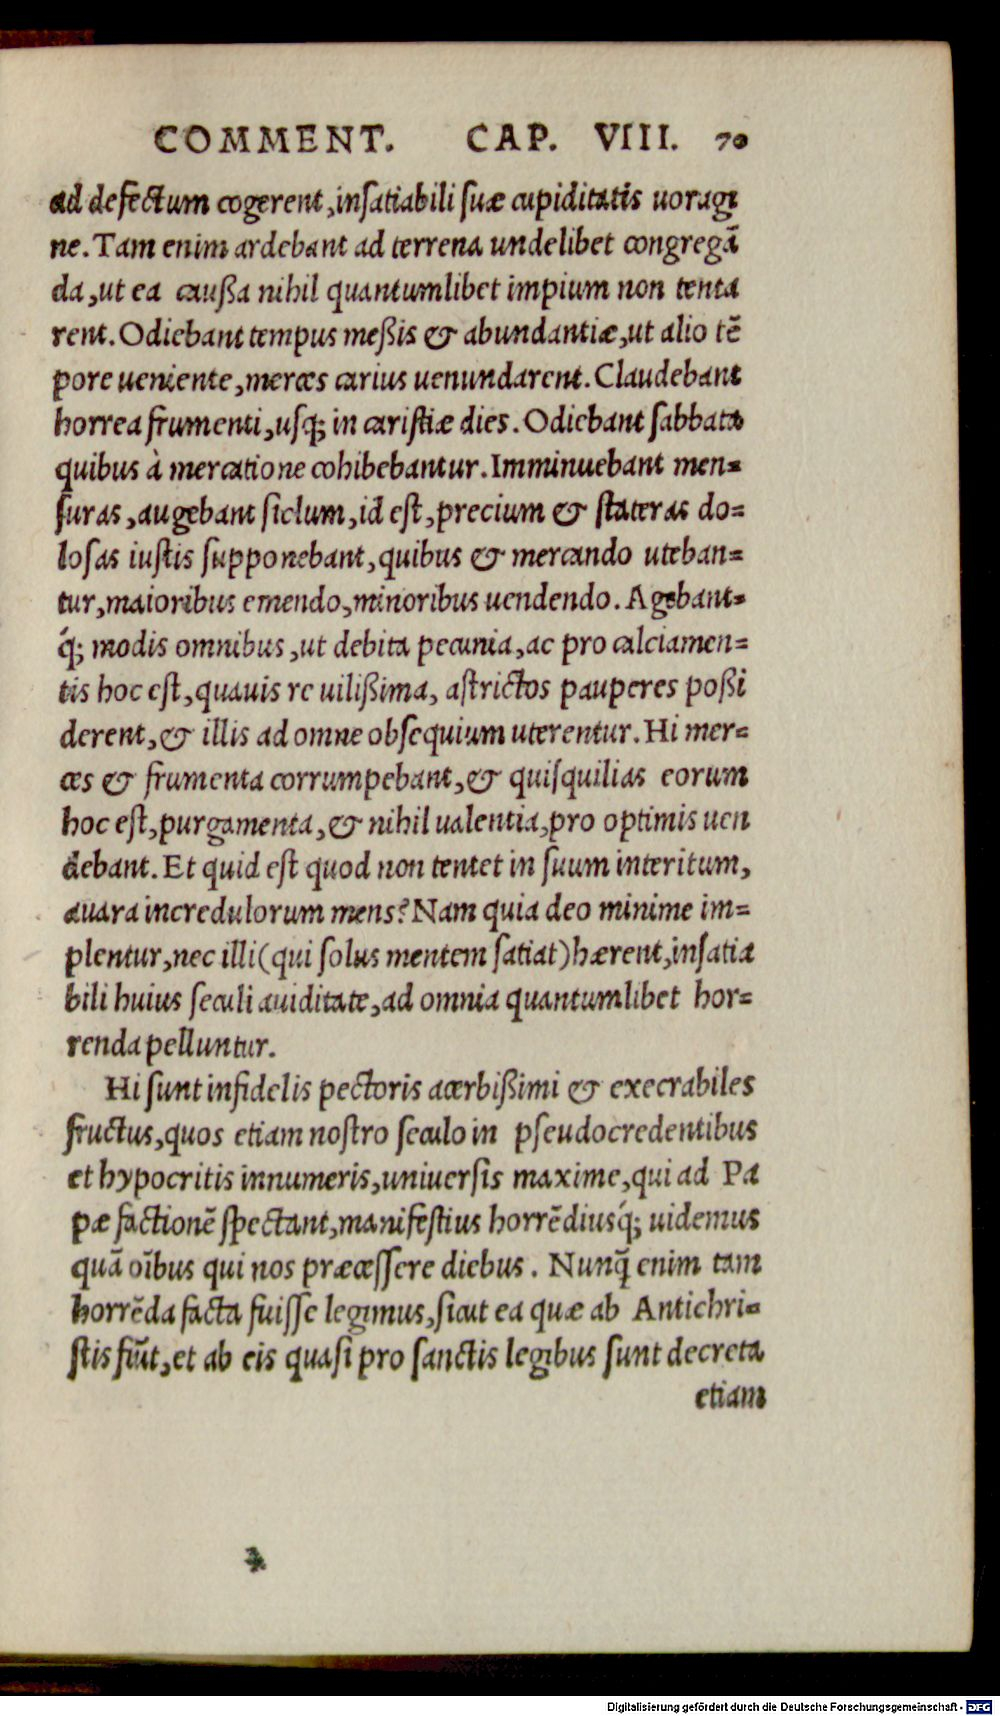 COMMENT. CAP. VIII. 70
ad defectum cogerent, inſatiabili ſuæ cupiditatis uoragi
ne. Tam enim ardebant ad terrena undelibet congregã
da, ut ea cauſſa nihil quantumlibet impium non tenta
rent. Odiebant tempus meßis & abundantiæ, ut alio tẽ
pore ueniente, merces carius uenundarent. Claudebant
horrea frumenti, uſq; in cariſtiæ dies. Odiebant ſabbata
quibus à mercatione cohibebantur. Imminuebant men=
ſuras, augebant ſiclum, id eſt, precium & ſtateras do=
loſas iuſtis ſupponebant, quibus & mercando uteban=
tur, maioribus emendo, minoribus uendendo. Agebant=
q́; modis omnibus, ut debita pecunia, ac pro calciamen=
tis hoc eſt, quauis re uilißima, aſtrictos pauperes poßi
derent, & illis ad omne obſequium uterentur. Hi mer=
ces & frumenta corrumpebant, & quiſquilias eorum
hoc eſt, purgamenta, & nihil ualentia, pro optimis uen
debant. Et quid eſt quod non tentet in ſuum interitum,
auara incredulorum mens? Nam quia deo minime im=
plentur, nec illi (qui ſolus mentem ſatiat) hærent, inſatia
bili huius ſeculi auiditate, ad omnia quantumlibet hor=
renda pelluntur.
Hi ſunt infidelis pectoris acerbißimi & execrabiles
fructus, quos etiam noſtro ſeculo in pſeudocredentibus
et hypocritis innumeris, uniuerſis maxime, qui ad Pa
pæ factionẽ ſpectant, manifeſtius horrẽdiusq́; uidemus
quã oĩbus qui nos præceſſere diebus. Nunq̃ enim tam
horrẽda facta fuiſſe legimus, ſicut ea quæ ab Antichri=
ſtis fiũt, et ab eis quaſi pro ſanctis legibus ſunt decreta
etiam
Digitalisierung gefördert durch die Deutsche Forschungsgemeinschaft - DFG